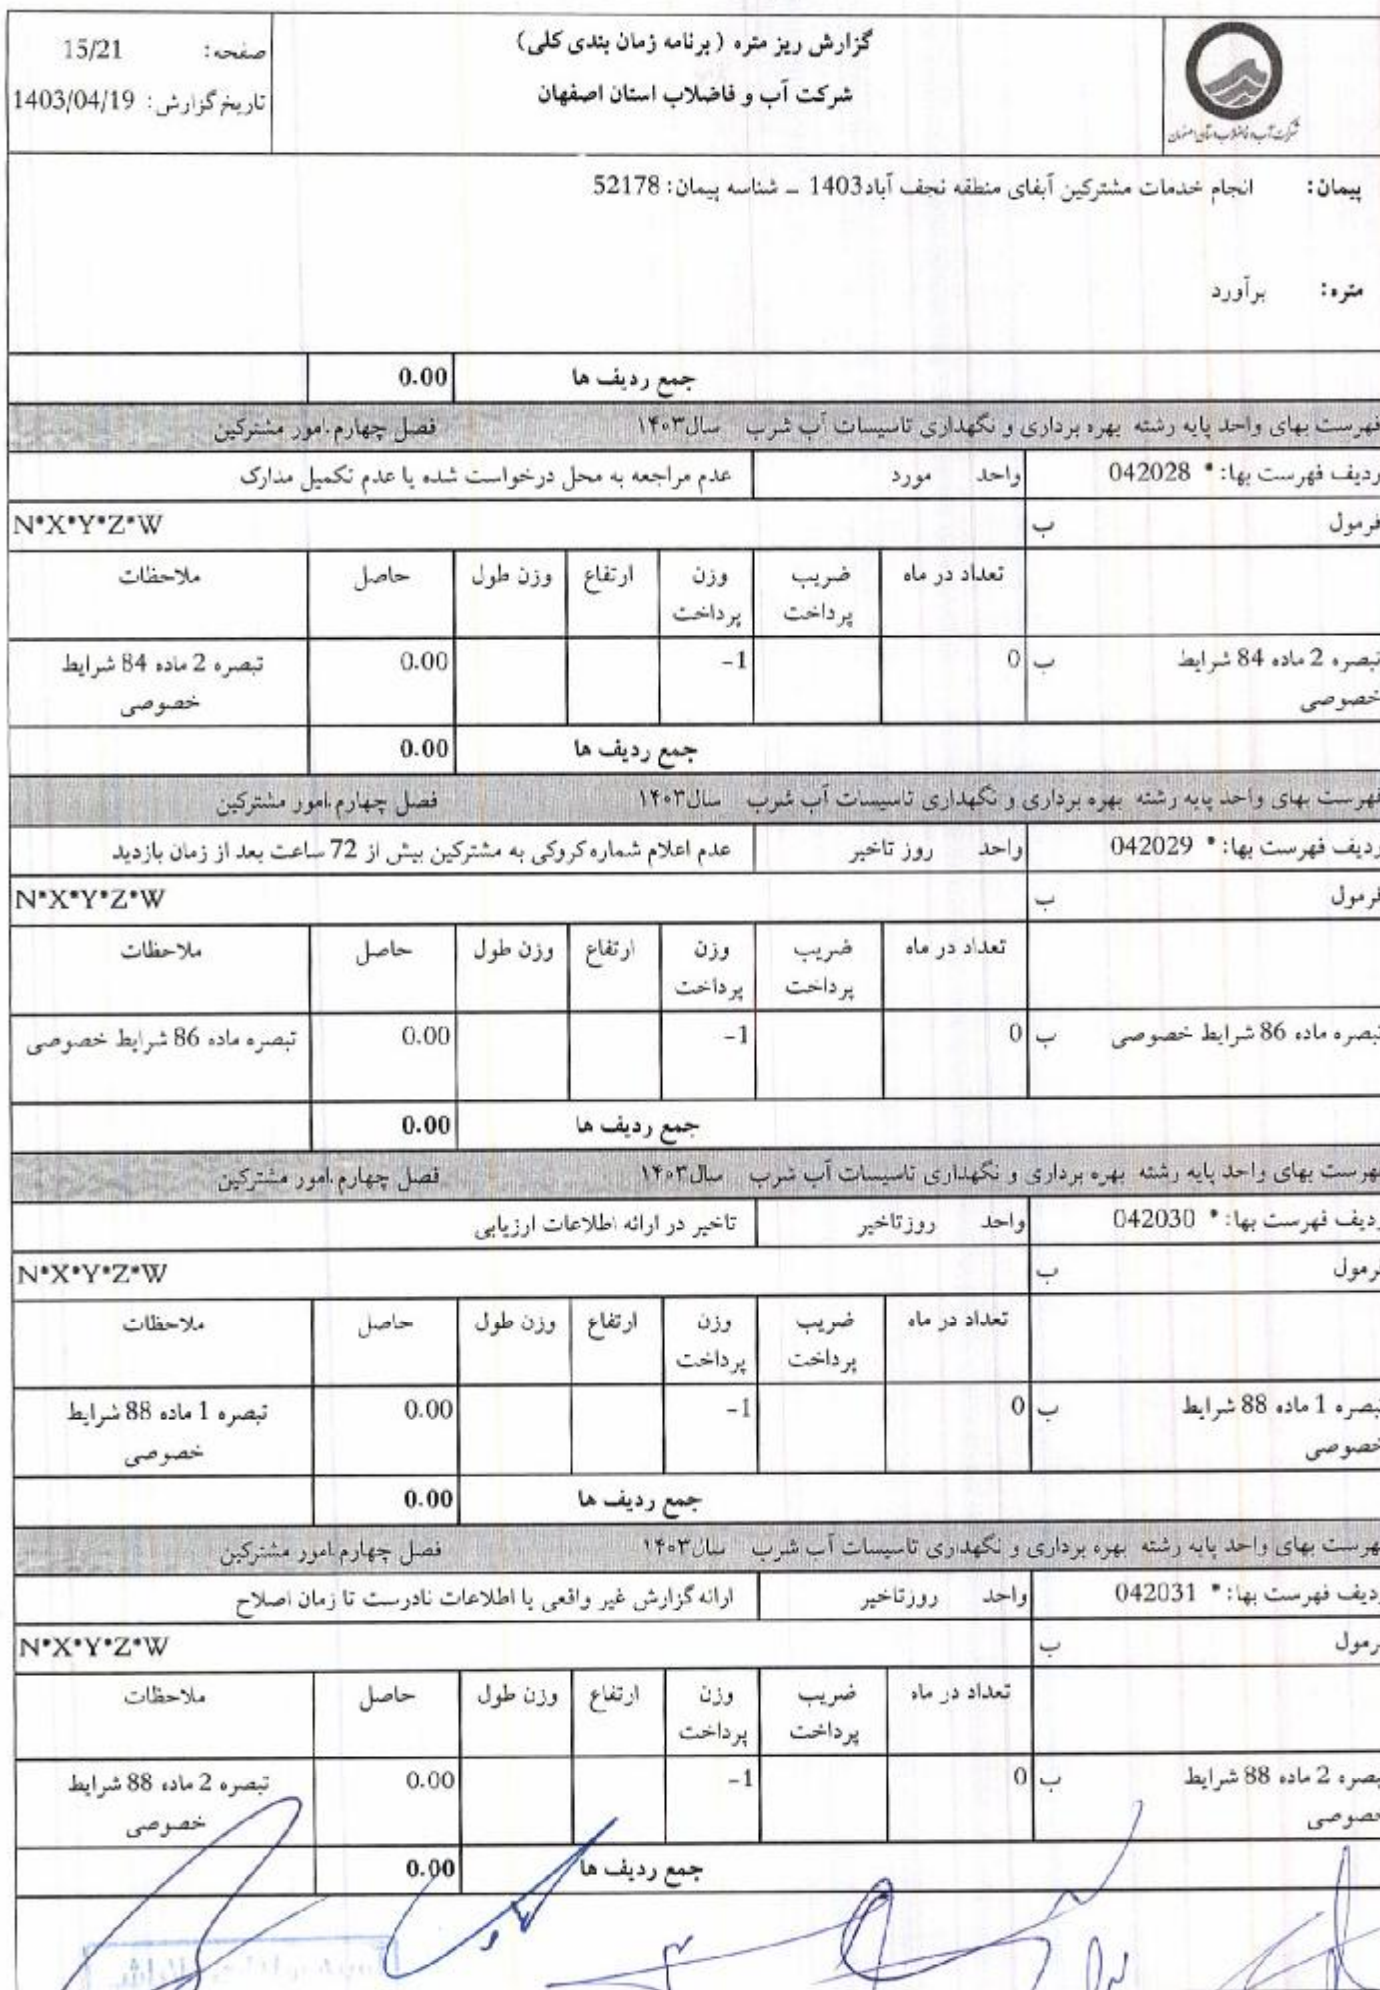 گزارش ریز متره ( برنامه زمان بندی کلی)
شرکت آب و فاضلاب استان اصفهان
صفحه: 15/21
تاریخ گزارش: 1403/04/19
شرکت آب و فاضلاب استان اصفهان
پیمان: انجام خدمات مشترکین آبفای منطقه نجف آباد1403 – شناسه پیمان: 52178
متره: برآورد
جمع ردیف ها 0.00
فهرست بهای واحد پایه رشته بهره برداری و نگهداری تاسیسات آب شرب سال۱۴۰۳ فصل چهارم.امور مشترکین
ردیف فهرست بها: * 042028 واحد مورد عدم مراجعه به محل درخواست شده یا عدم تکمیل مدارک
فرمول ب N*X*Y*Z*W
تعداد در ماه ضریب پرداخت وزن پرداخت ارتفاع وزن طول حاصل ملاحظات
تبصره 2 ماده 84 شرایط خصوصی ب 0 -1 0.00 تبصره 2 ماده 84 شرایط خصوصی
جمع ردیف ها 0.00
فهرست بهای واحد پایه رشته بهره برداری و نگهداری تاسیسات آب شرب سال۱۴۰۳ فصل چهارم.امور مشترکین
ردیف فهرست بها: * 042029 واحد روز تاخیر عدم اعلام شماره کروکی به مشترکین بیش از 72 ساعت بعد از زمان بازدید
فرمول ب N*X*Y*Z*W
تعداد در ماه ضریب پرداخت وزن پرداخت ارتفاع وزن طول حاصل ملاحظات
تبصره ماده 86 شرایط خصوصی ب 0 -1 0.00 تبصره ماده 86 شرایط خصوصی
جمع ردیف ها 0.00
فهرست بهای واحد پایه رشته بهره برداری و نگهداری تاسیسات آب شرب سال۱۴۰۳ فصل چهارم.امور مشترکین
ردیف فهرست بها: * 042030 واحد روزتاخیر تاخیر در ارائه اطلاعات ارزیابی
فرمول ب N*X*Y*Z*W
تعداد در ماه ضریب پرداخت وزن پرداخت ارتفاع وزن طول حاصل ملاحظات
تبصره 1 ماده 88 شرایط خصوصی ب 0 -1 0.00 تبصره 1 ماده 88 شرایط خصوصی
جمع ردیف ها 0.00
فهرست بهای واحد پایه رشته بهره برداری و نگهداری تاسیسات آب شرب سال۱۴۰۳ فصل چهارم.امور مشترکین
ردیف فهرست بها: * 042031 واحد روزتاخیر ارائه گزارش غیر واقعی یا اطلاعات نادرست تا زمان اصلاح
فرمول ب N*X*Y*Z*W
تعداد در ماه ضریب پرداخت وزن پرداخت ارتفاع وزن طول حاصل ملاحظات
تبصره 2 ماده 88 شرایط خصوصی ب 0 -1 0.00 تبصره 2 ماده 88 شرایط خصوصی
جمع ردیف ها 0.00